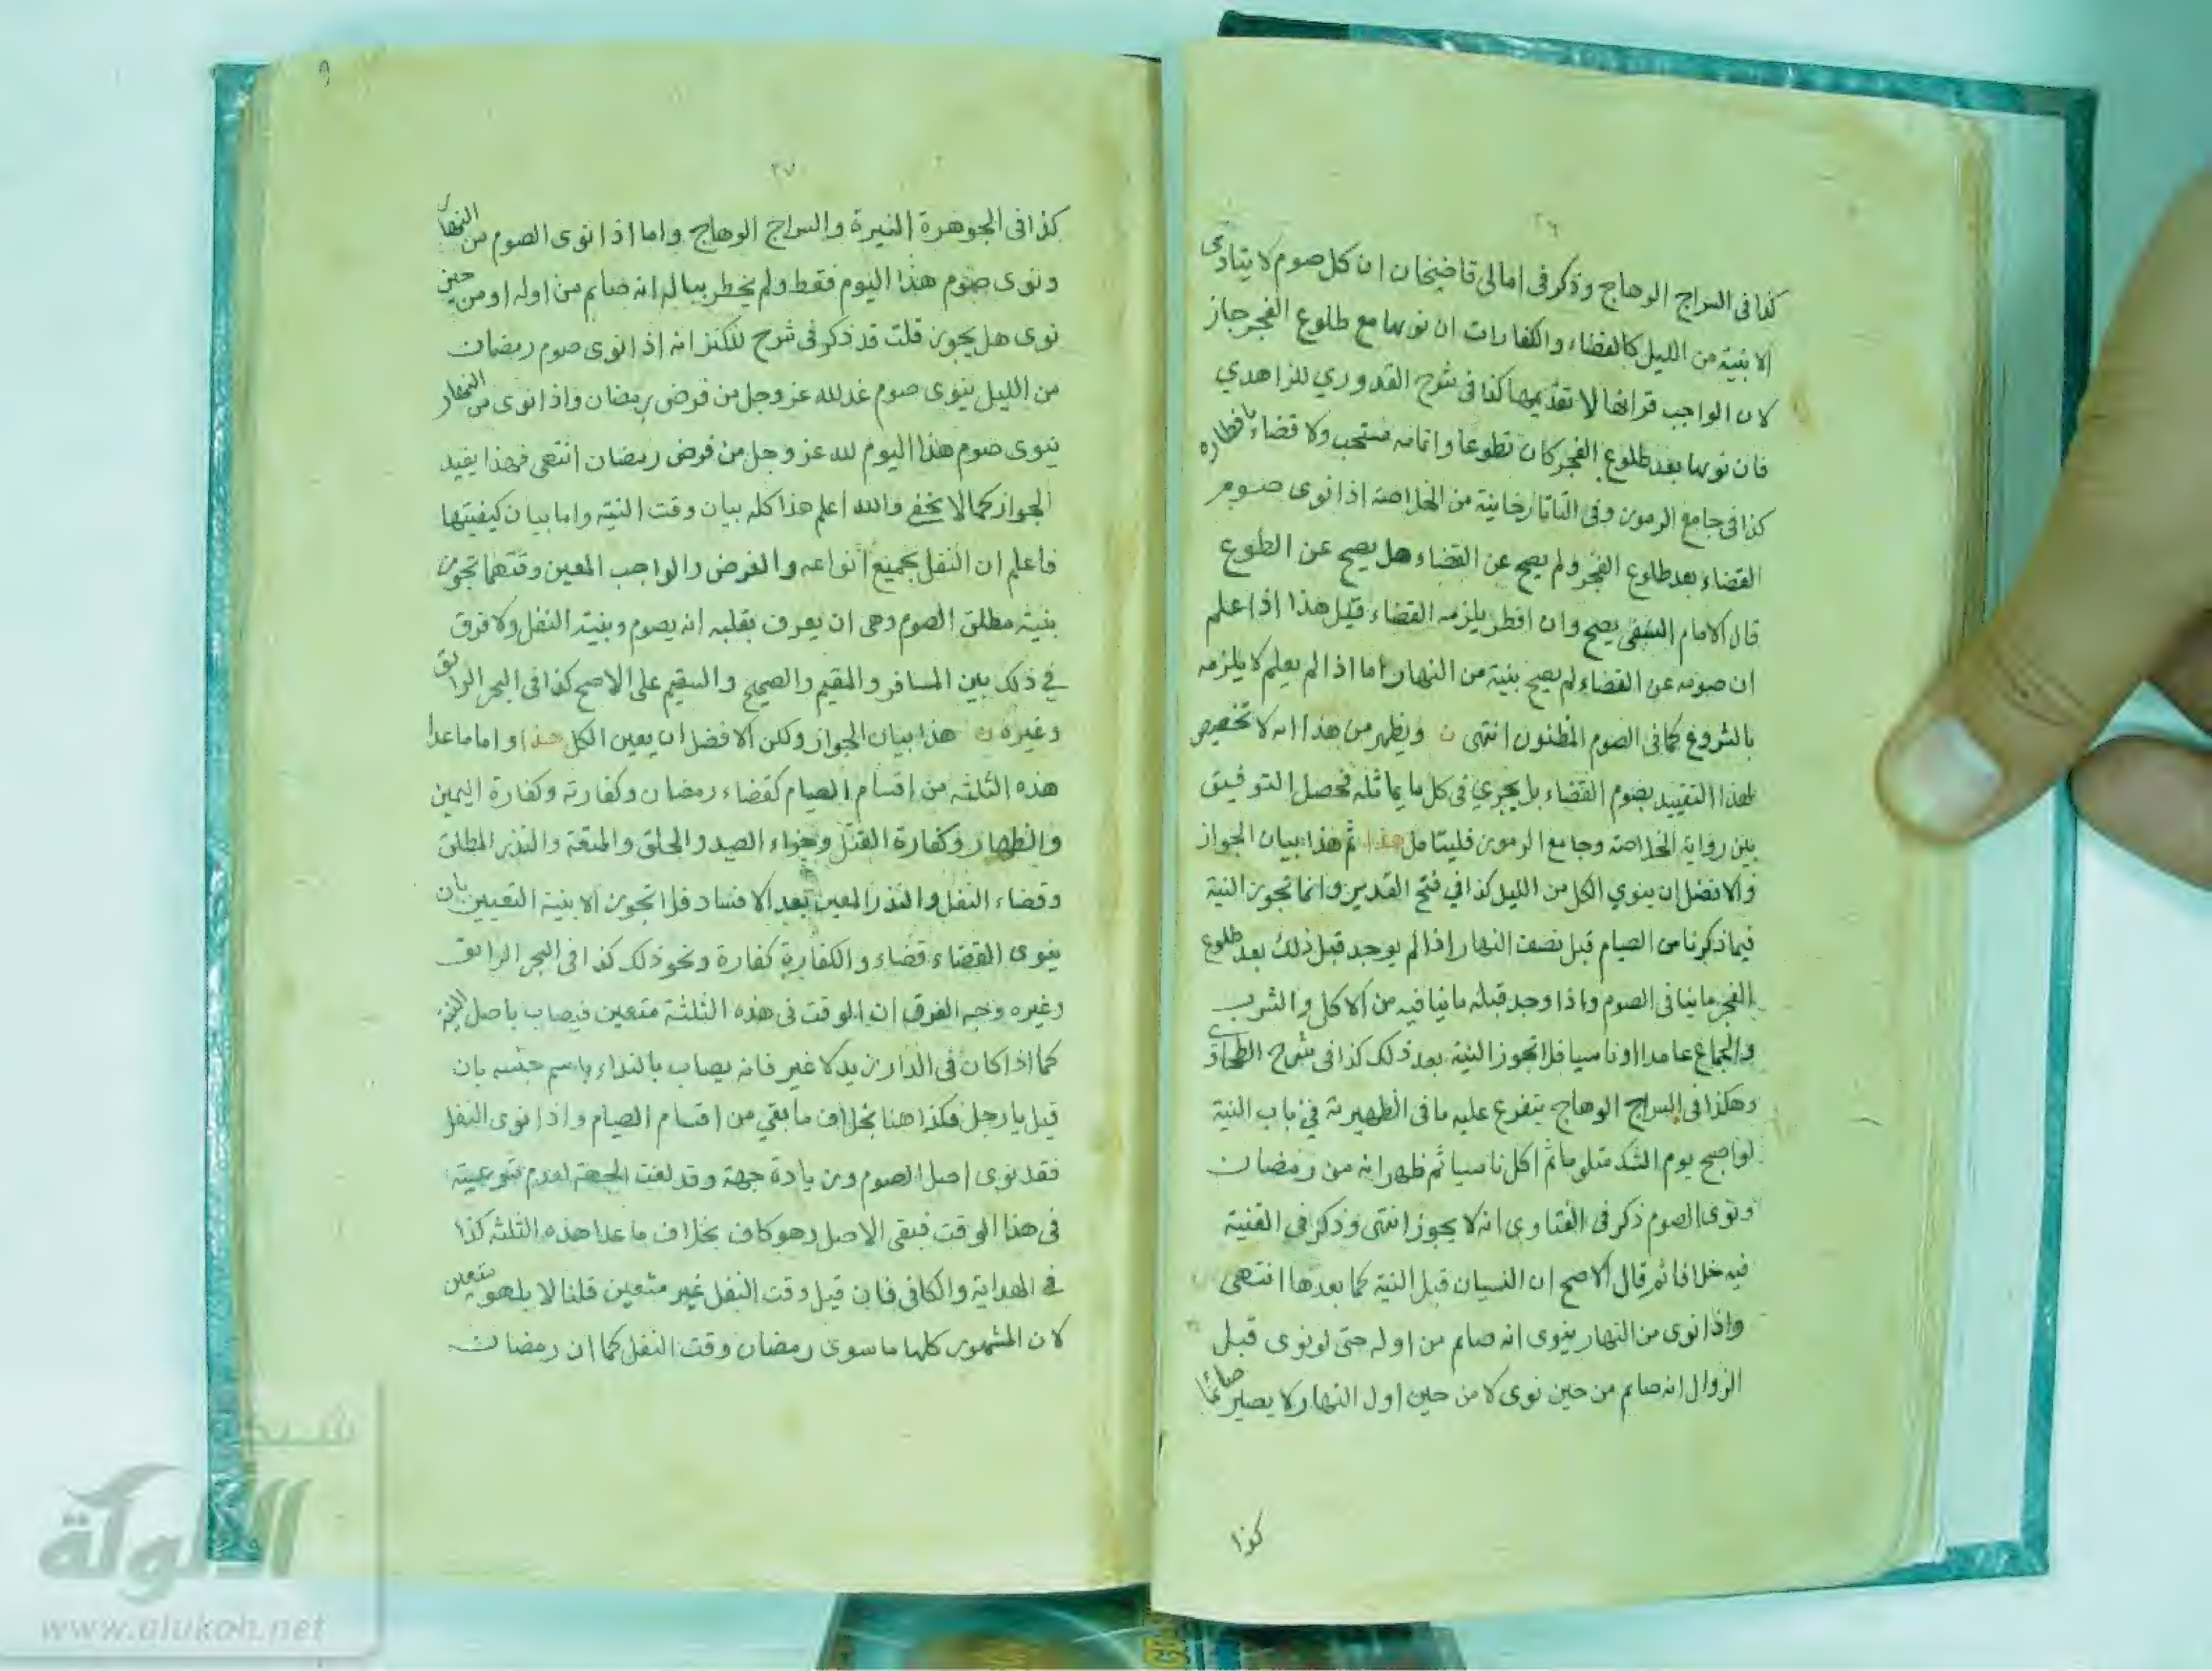 ٢٦
كذا فى السراج الوهاج وذكر فى امالى قاضيخان ان كل صوم لا يتادى
الا بنية من الليل كالقضاء والكفارات ان نويها مع طلوع الفجر جاز
لان الواجب قرانها لا تقديمها كذا فى شرح القدوري للزاهدي
فان نويها بعد طلوع الفجر كان تطوعا واتمامه مستحب ولا قضاء بافطاره
كذا فى جامع الرموز وفى التاتارخانية من الخلاصة اذا نوى صوم
القضاء بعد طلوع الفجر ولم يصح عن القضاء هل يصح عن الطوع
قال الامام النسفى يصح وان افطر يلزمه القضاء قيل هذا اذا علم
ان صومه عن القضاء لم يصح بنية من النهار اما اذا لم يعلم لا يلزمه
بالشروع كما فى الصوم المظنون انتهى ويظهر من هذا انه لا تخصيص
لهذا التقييد بصوم القضاء بل يجري فى كل ما يماثله فحصل التوفيق
بين رواية الخلاصة وجامع الرموز فليتامل هذا ثم هذا بيان الجواز
والافضل ان ينوي الكل من الليل كذا في فتح القدير وانما تجوز النية
فيما ذكرنا من الصيام قبل نصف النهار اذا لم يوجد قبل ذلك بعد طلوع
الفجر ما ينافى الصوم واذا وجد قبله ما ينافيه من الاكل والشرب
والجماع عامدا او ناسيا فلا تجوز النية بعد ذلك كذا فى شرح الطحاوى
وهكذا فى السراج الوهاج يتفرع عليه ما فى الظهيرية في باب النية
لو اصبح يوم الشك متلوما ثم اكل ناسيا ثم ظهر انه من رمضان
ونوى الصوم ذكر فى الفتاوى انه لا يجوز انتهى وذكر فى القنية
فيه خلافا ثم قال الاصح ان النسيان قبل النية كما بعدها انتهى
واذا نوى من النهار ينوى انه صايم من اوله حتى لو نوى قبل
الزوال انه صايم من حين نوى لا من حين اول النهار لا يصير صائما
كذا
٩
٢٧
كذا فى الجوهرة النيرة والسراج الوهاج واما اذا نوى الصوم من النهار
ونوى صوم هذا اليوم فقط ولم يخطر بباله انه صايم من اوله او من حين
نوى هل يجوز قلت قد ذكر فى شرح للكنز انه اذا نوى صوم رمضان
من الليل ينوى صوم غد لله عز وجل من فرض رمضان واذا نوى من النهار
ينوى صوم هذا اليوم لله عز وجل من فرض رمضان انتهى فهذا يفيد
الجواز كما لا يخفى والله اعلم هذا كله بيان وقت النية واما بيان كيفيتها
فاعلم ان النفل بجميع انواعه والفرض والواجب المعين وقتهما تجوز
بنية مطلق الصوم وهى ان يعرف بقلبه انه يصوم وبنية النفل ولا فرق
في ذلك بين المسافر والمقيم والصحيح والسقيم على الاصح كذا فى البحر الرائق
وغيره هذا بيان الجواز ولكن الافضل ان يعين الكل هذا واما ما عدا
هذه الثلثة من اقسام الصيام كقضاء رمضان وكفارته وكفارة اليمين
والظهار وكفارة القتل وجزاء الصيد والحلق والمتعة والنذر المطلق
وقضاء النفل والنذر المعين بعد الافساد فلا تجوز الا بنية التعيين بان
ينوى القضاء قضاء والكفارة كفارة ونحو ذلك كذا فى البحر الرايق
وغيره وجه الفرق ان الوقت فى هذه الثلثة متعين فيصاب باصل النية
كما اذا كان فى الدار زيد لا غير فانه يصاب بالنداء باسم جنسه بان
قيل يا رجل فكذا هنا بخلاف ما بقي من اقسام الصيام واذا نوى النفل
فقد نوى اصل الصوم وزيادة جهة وقد لغت الجهة لعدم شوعيته
فى هذا الوقت فبقى الاصل وهو كاف بخلاف ما عدا هذه الثلثة كذا
فى الهداية والكافى فان قيل وقت النفل غير متعين قلنا لا بل هو متعين
لان الشهور كلها ما سوى رمضان وقت النفل كما ان رمضان
شبكة
الألوكة
www.alukah.net